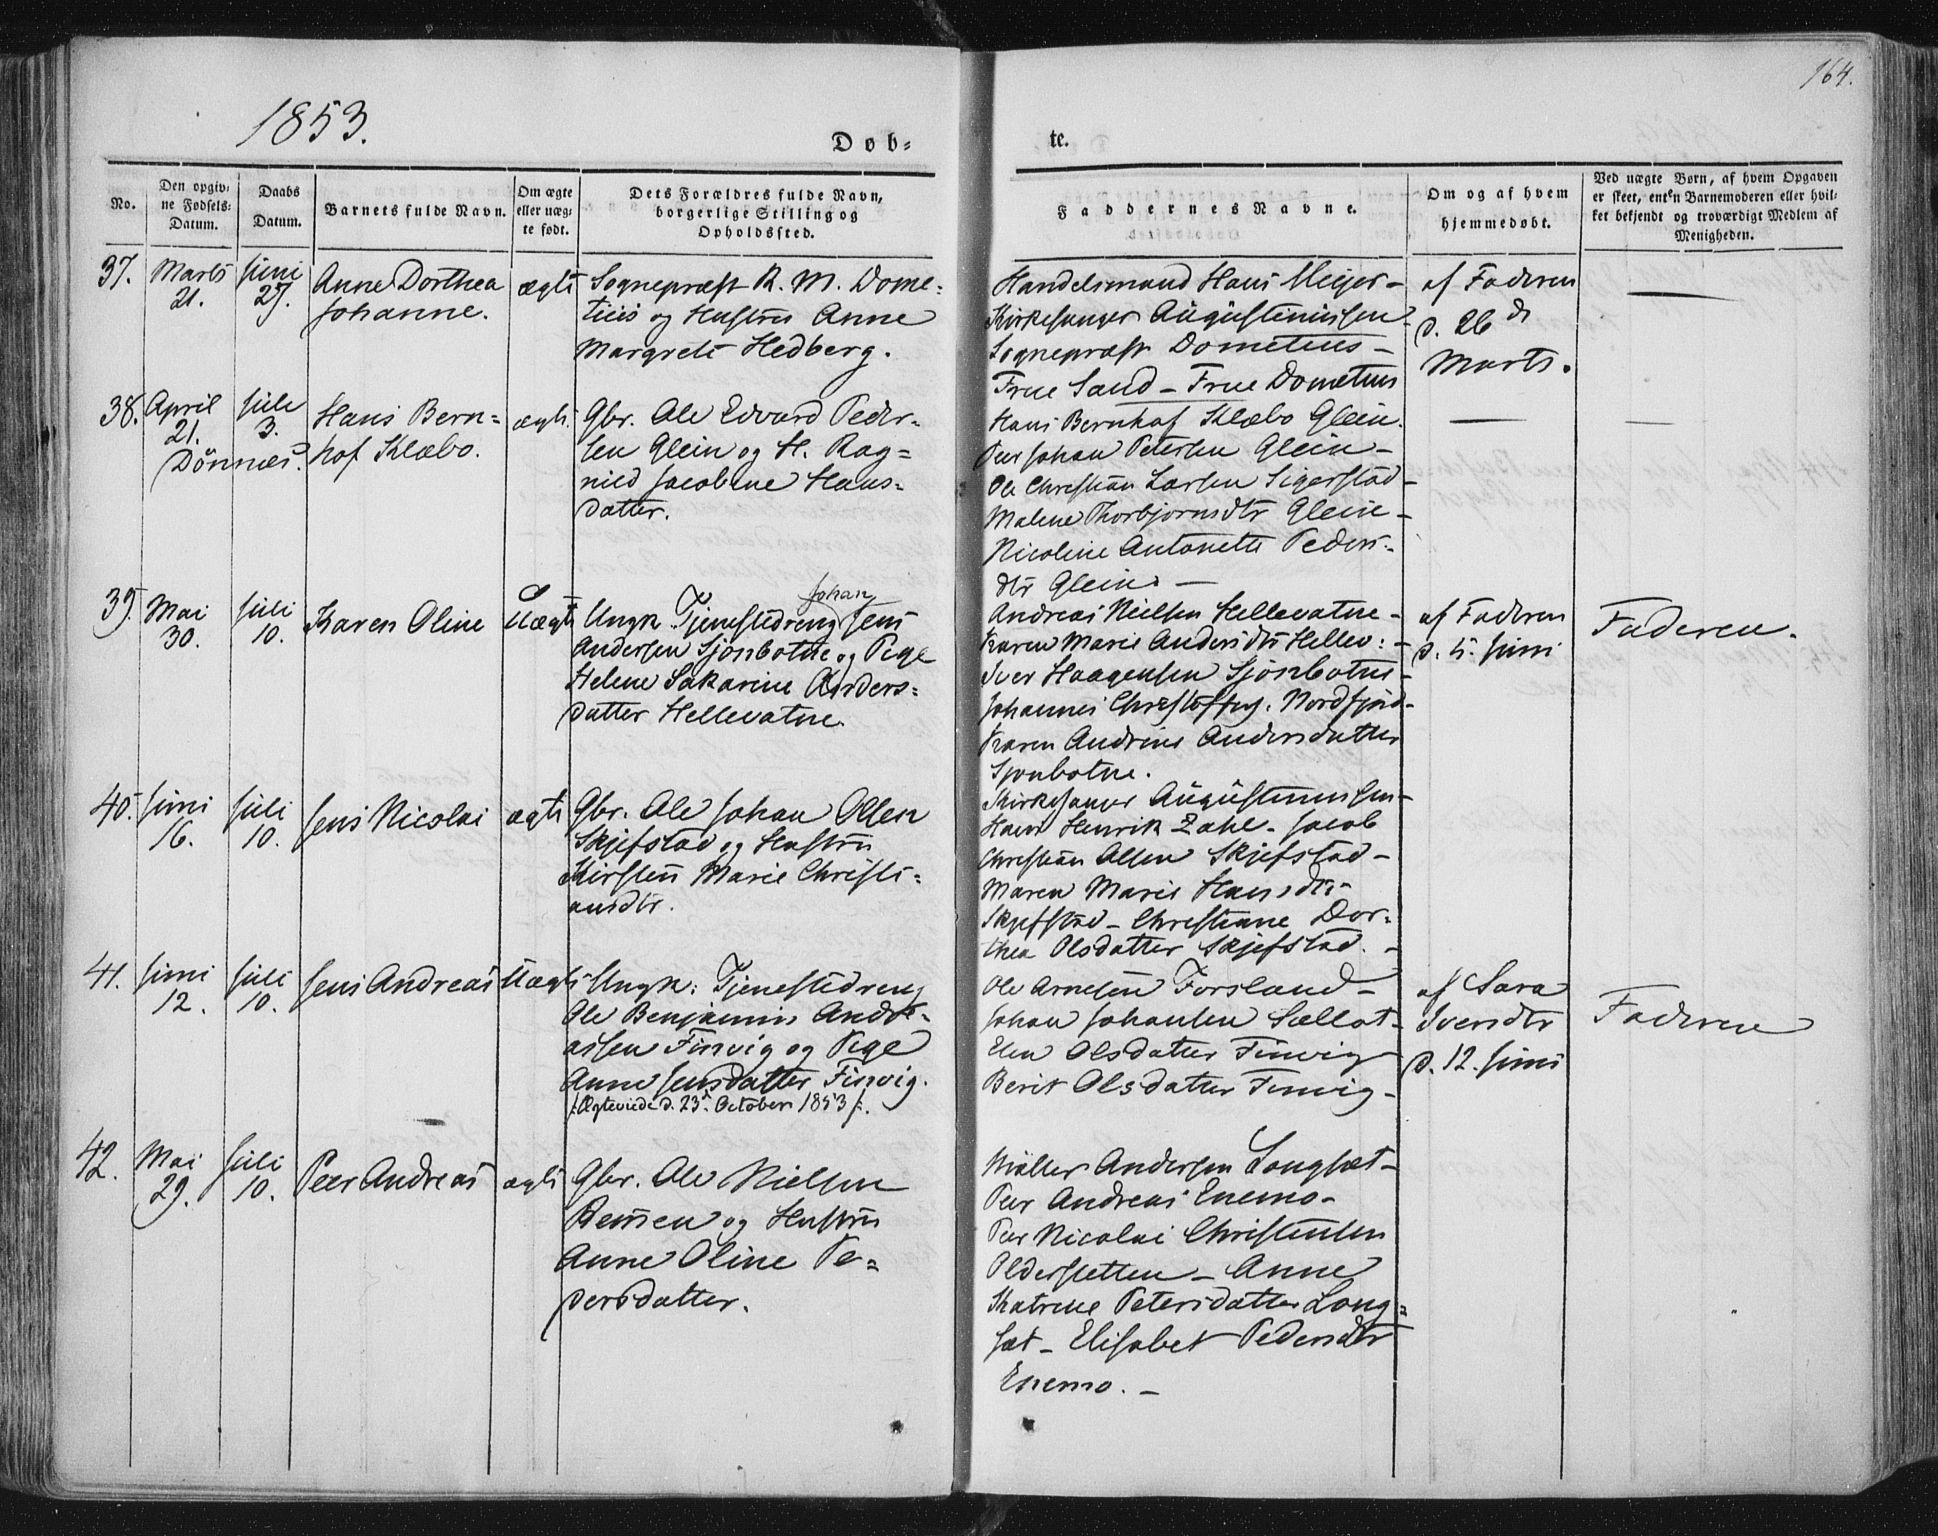 1853.
Døb-
te.
164.
No.
Den opgiv-
ne Fødsels-
Datum.
Daabs
Datum.
Barnets fulde Navn.
Om ægte
eller uæg-
te født.
Dets Forældres fulde Navn,
borgerlige Stilling og
Opholdssted.
Faddernes Navne.
Om og af hvem
hjemmedøbt.
Ved uægte Børn, af hvem Opgaven
er skeet, enten Barnemoderen eller hvil-
ket bekjendt og troværdigt Medlem af
Menigheden.
37.
Marts
21.
Juni
27.
Anne Dorthea
Johanne.
ægte
Sognepræst R. M. Dome-
tius og Hustru Anne
Margrete Hedberg.
Handelsmand Hans Meyer -
Kirkesanger Augustinussen
Sognepræst Dometius -
Frue Sand - Frue Dometius
af Faderen
d. 26 d
Marts.
38.
April
21.
Dønnæs.
Juli
3.
Hans Bern-
hof Klæbo.
ægte.
Gbr. Ole Edvard Peder-
sen Glein og H. Rag-
nild Jacobine Hans-
datter.
Hans Bernhof Klæbo Glein.
Peer Johan Petersen Glein -
Ole Christian Larsen Sigerstad -
Malene Thorbjornsdtr Glein -
Nicoline Antonette Peders-
dtr Glein. -
39.
Mai
30.
Juli
10.
Karen Oline
Uægte
Johan
Ungk. Tjenestedreng Jens
Andersen Sjonbotne og Pige
Helene Sakarine Anders-
datter Hellevatne.
Andreas Nielsen Hellevatne -
Karen Marie Andersdtr Hellev: -
Iver Haagensen Sjonbotne -
Johannes Christoffers. Nordfjord -
Karen Andrine Andersdatter
Sjonbotne.
af Faderen
d. 5. Juni
Faderen.
40.
Juni
16.
Juli
10.
Jens Nicolai
ægte
Gbr. Ole Johan Olsen
Skjefstad og Hustru
Kirsten Marie Christi-
ansdtr.
Kirkesanger Augustinussen -
Hans Henrik Zahl - Jacob
Christian Olsen Skjefstad -
Maren Marie Hansdtr -
Skjefstad - Christiane Dor-
thea Olsdatter Skjefstad. -
41.
Juni
12.
Juli
10.
Jens Andreas
Uægte
Ungk: Tjenestedreng
Ole Benjamin Andre-
assen Finvig og Pige
Anne Jensdatter Finvig.
/: Ægteviede d. 23d October 1853 :/.
Ole Arnesen Forsland -
Johan Johansen Sellot -
Elen Olsdatter Finvig
Berit Olsdatter Finvig -
af Sara
Iversdtr
d. 12. Juni
Faderen
42.
Mai
29.
Juli
10.
Peer Andreas
ægte
Gbr. Ole Nielsen
Remen og Hustru
Anne Oline Pe-
dersdatter.
Møller Andersen Longset -
Peer Andreas Enemo -
Peer Nicolai Christensen
Olderstetten - Anne
Katrine Petersdatter Long-
set - Elisabet Pedersdtr
Enemo. -